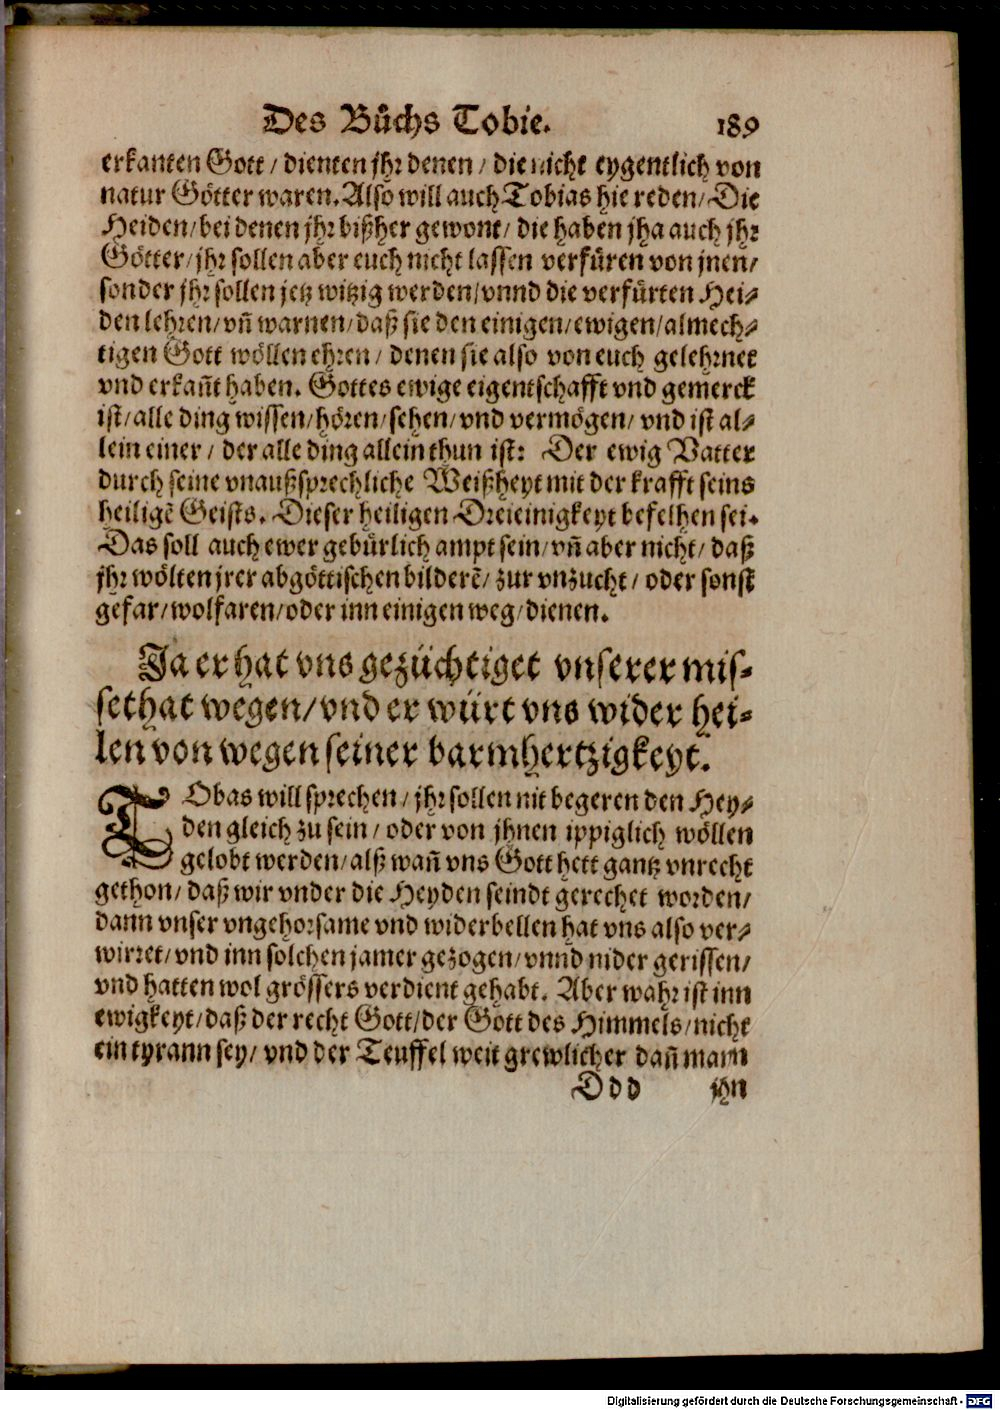 Des Bůchs Tobie. 189
erkanten Gott / dienten jhr denen / die nicht eygentlich von
natur Götter waren. Also will auch Tobias hie reden / Die
Heiden / bei denen jhr bißher gewont / die haben jha auch jhr
Götter / jhr sollen aber euch nicht lassen verfüren von jnen /
sonder jhr sollen jetz witzig werden / vnnd die verfürten Hei⸗
den lehren / vñ warnen / daß sie den einigen / ewigen / almech⸗
tigen Gott wöllen ehren / denen sie also von euch gelehrnet
vnd erkañt haben. Gottes ewige eigentschafft vnd gemerck
ist / alle ding wissen / hören / sehen / vnd vermögen / vnd ist al⸗
lein einer / der alle ding allein thun ist: Der ewig Vatter
durch seine vnaußsprechliche Weißheyt mit der krafft seins
heiligẽ Geists. Dieser heiligen Dreieinigkeyt befelhen sei.
Das soll auch ewer gebürlich ampt sein / vñ aber nicht / daß
jhr wölten jrer abgöttischen bilderẽ / zur vnzucht / oder sonst
gefar / wolfaren / oder inn einigen weg / dienen.
Ja er hat vns gezüchtiget vnserer mis⸗
sethat wegen / vnd er würt vns wider hei⸗
len von wegen seiner barmhertzigkeyt.
TObas will sprechen / jhr sollen nit begeren den Hey⸗
den gleich zu sein / oder von jhnen ippiglich wöllen
gelobt werden / alß wañ vns Gott hett gantz vnrecht
gethon / daß wir vnder die Heyden seindt gerechet worden /
dann vnser vngehorsame vnd widerbellen hat vns also ver⸗
wirret / vnd inn solchen jamer gezogen / vnnd nider gerissen /
vnd hatten wol grössers verdient gehabt. Aber wahr ist inn
ewigkeyt / daß der recht Gott / der Gott des Himmels / nicht
ein tyrann sey / vnd der Teuffel weit grewlicher dañ mann
Ddd jhn
Digitalisierung gefördert durch die Deutsche Forschungsgemeinschaft - DFG